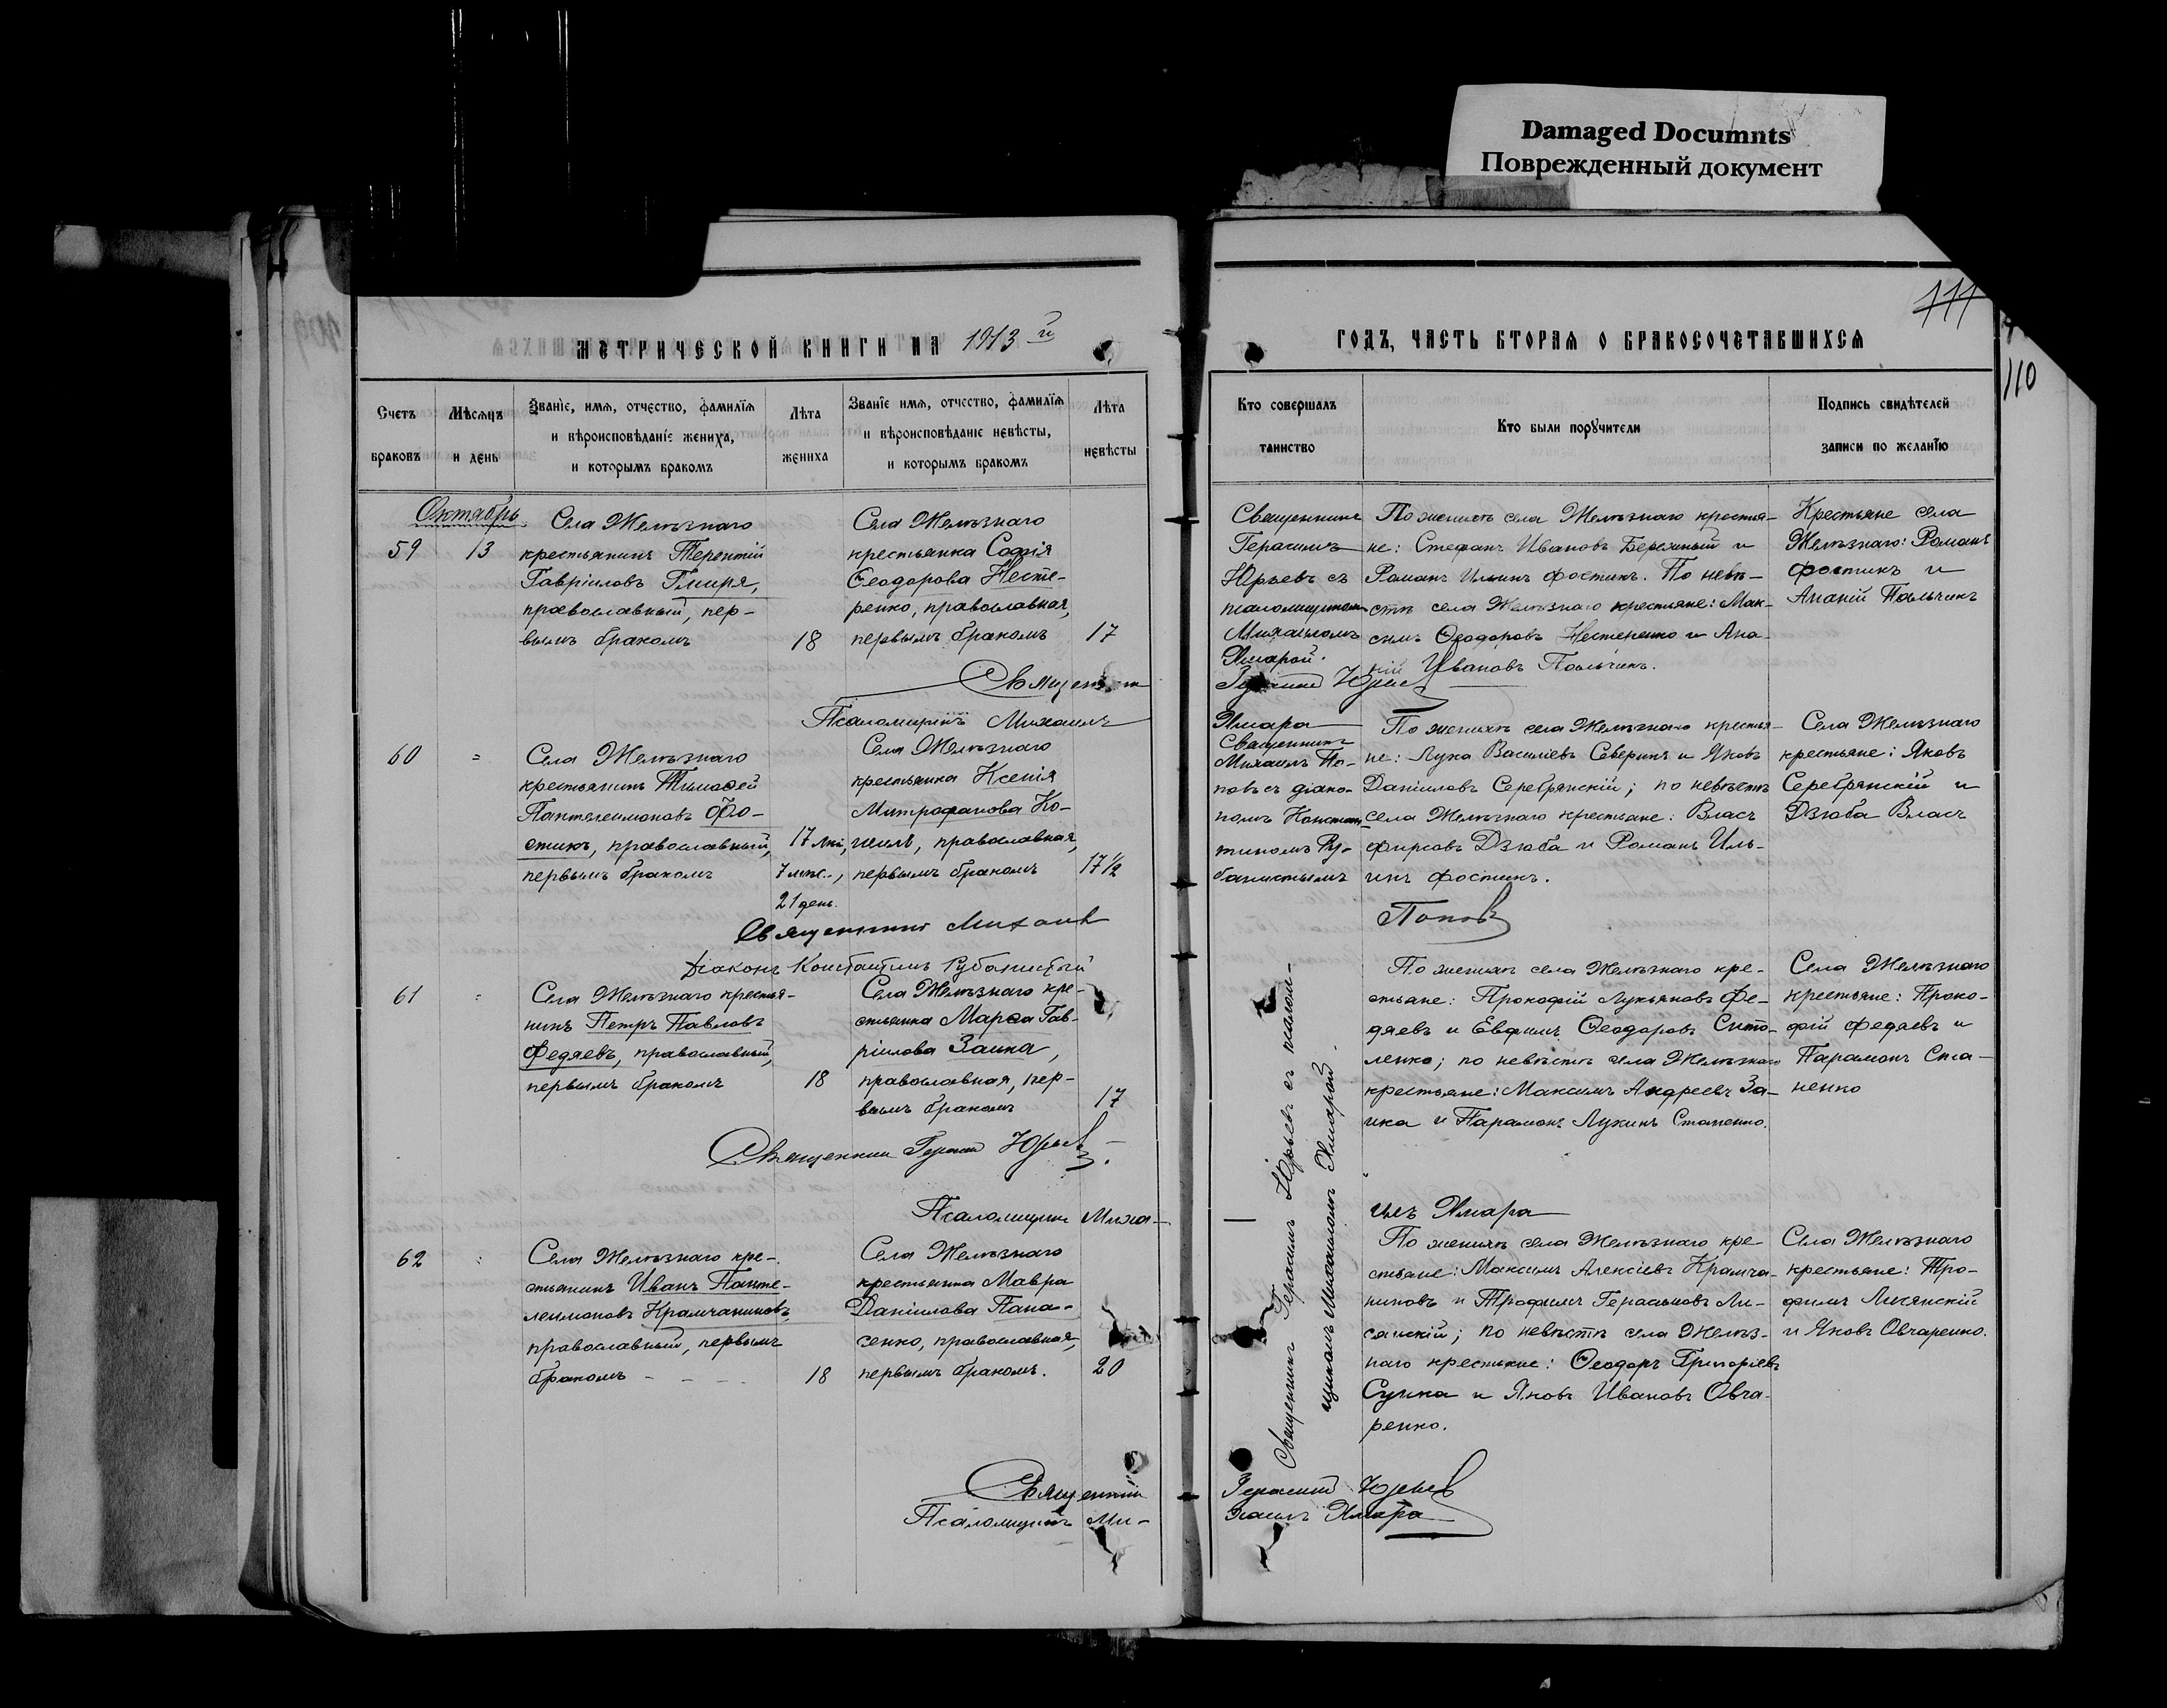 Damaged Documnts
Поврежденный документ
111
110
МЕТРИЧЕСКОЙ КНИГИ НА 1913 й
ГОДЪ, ЧАСТЬ ВТОРАЯ О БРАКОСОЧЕТАВШИХСЯ
Счетъ браковъ
Мѣсяцъ и день
Званіе, имя, отчество, фамилія
и вѣроисповѣданіе жениха,
и которымъ бракомъ
Лѣта жениха
Званіе имя, отчество, фамилія
и вѣроисповѣданіе невѣсты,
и которымъ бракомъ
Лѣта невѣсты
Кто совершалъ
таинство
Кто были поручители
Подпись свидѣтелей
записи по желанію
Октябрь
59
13
Села Желѣзнаго
крестьянинъ Терентій
Гавріиловъ Гмиря,
православный, пер-
вымъ бракомъ
18
Села Желѣзнаго
крестьянка Софія
Ѳеодорова Несте-
ренко, православная,
первымъ бракомъ
17
Священникъ
Герасимъ
Юрьевъ съ
псаломщикомъ
Михаиломъ
Хмарой.
По женихѣ села Желѣзнаго крестья-
не: Стефанъ Ивановъ Бережный и
Романъ Ильинъ Фостикъ. По невѣ-
стѣ села Желѣзнаго крестьяне: Мак-
симъ Ѳеодоровъ Нестеренко и Ана-
ній Ивановъ Пальчикъ.
Крестьяне села
Желѣзнаго: Романъ
Фостикъ и
Ананій Пальчикъ
Священникъ
Герасимъ Юрьевъ
Псаломщикъ Михаилъ
Хмара
60
=
Села Желѣзнаго
крестьянинъ Тимоѳей
Пантелеимоновъ Фо-
стикъ, православный,
первымъ бракомъ
17 лѣт,
7 мѣс.,
21 день.
Села Желѣзнаго
крестьянка Ксенія
Митрофанова Ко-
православная,
первымъ бракомъ
17 ½
Священникъ
Михаилъ По-
повъ съ діако-
номъ Констан-
тиномъ Ру-
банистымъ
По женихѣ села Желѣзнаго крестья-
не: Лука Василіевъ Северинъ и Яковъ
Даніиловъ Серебрянскій; по невѣстѣ
села Желѣзнаго крестьяне: Власъ
Фирсовъ Дзюба и Романъ Иль-
инъ Фостикъ.
Села Желѣзнаго
крестьяне: Яковъ
Серебрянскій и
Дзюба Власъ
Священникъ Михаилъ
Поповъ
Діаконъ Константинъ Рубанистый
61
=
Села Желѣзнаго крестья-
нинъ Петръ Павловъ
Федяевъ, православный,
первымъ бракомъ
18
Села Желѣзнаго кре-
стьянка Марѳа Гав-
ріилова Заика,
православная, пер-
вымъ бракомъ
17
Священникъ Герасимъ Юрьевъ съ псалом-
щикомъ Михаиломъ Хмарой.
По женихѣ села Желѣзнаго кре-
стьяне: Прокофій Лукьяновъ Фе-
дяевъ и Евфимъ Ѳеодоровъ Сито-
ленко; по невѣстѣ села Желѣзнаго
крестьяне: Максимъ Андреевъ За-
ика и Парамонъ Лукинъ Станенко.
Села Желѣзнаго
крестьяне: Проко-
фій Федяевъ и
Парамонъ Ста-
ненко
Священникъ Герасимъ Юрьевъ.
Псаломщикъ Миха-
илъ Хмара
62
=
Села Желѣзнаго кре-
стьянинъ Иванъ Панте-
леимоновъ Крамчаниновъ,
православный, первымъ
бракомъ
18
Села Желѣзнаго
крестьянка Мавра
Даніилова Пана-
сенко, православная,
первымъ бракомъ.
20
По женихѣ села Желѣзнаго кре-
стьяне: Максимъ Алексіевъ Крамча-
ниновъ и Трофимъ Герасимовъ Ли-
сянскій; по невѣстѣ села Желѣз-
наго крестьяне: Ѳеодоръ Григоріевъ
Сучка и Яковъ Ивановъ Овча-
ренко.
Села Желѣзнаго
крестьяне: Тро-
фимъ Лисянскій
и Яковъ Овчаренко.
Священникъ
Герасимъ Юрьевъ
Псаломщикъ Ми-
хаилъ Хмара